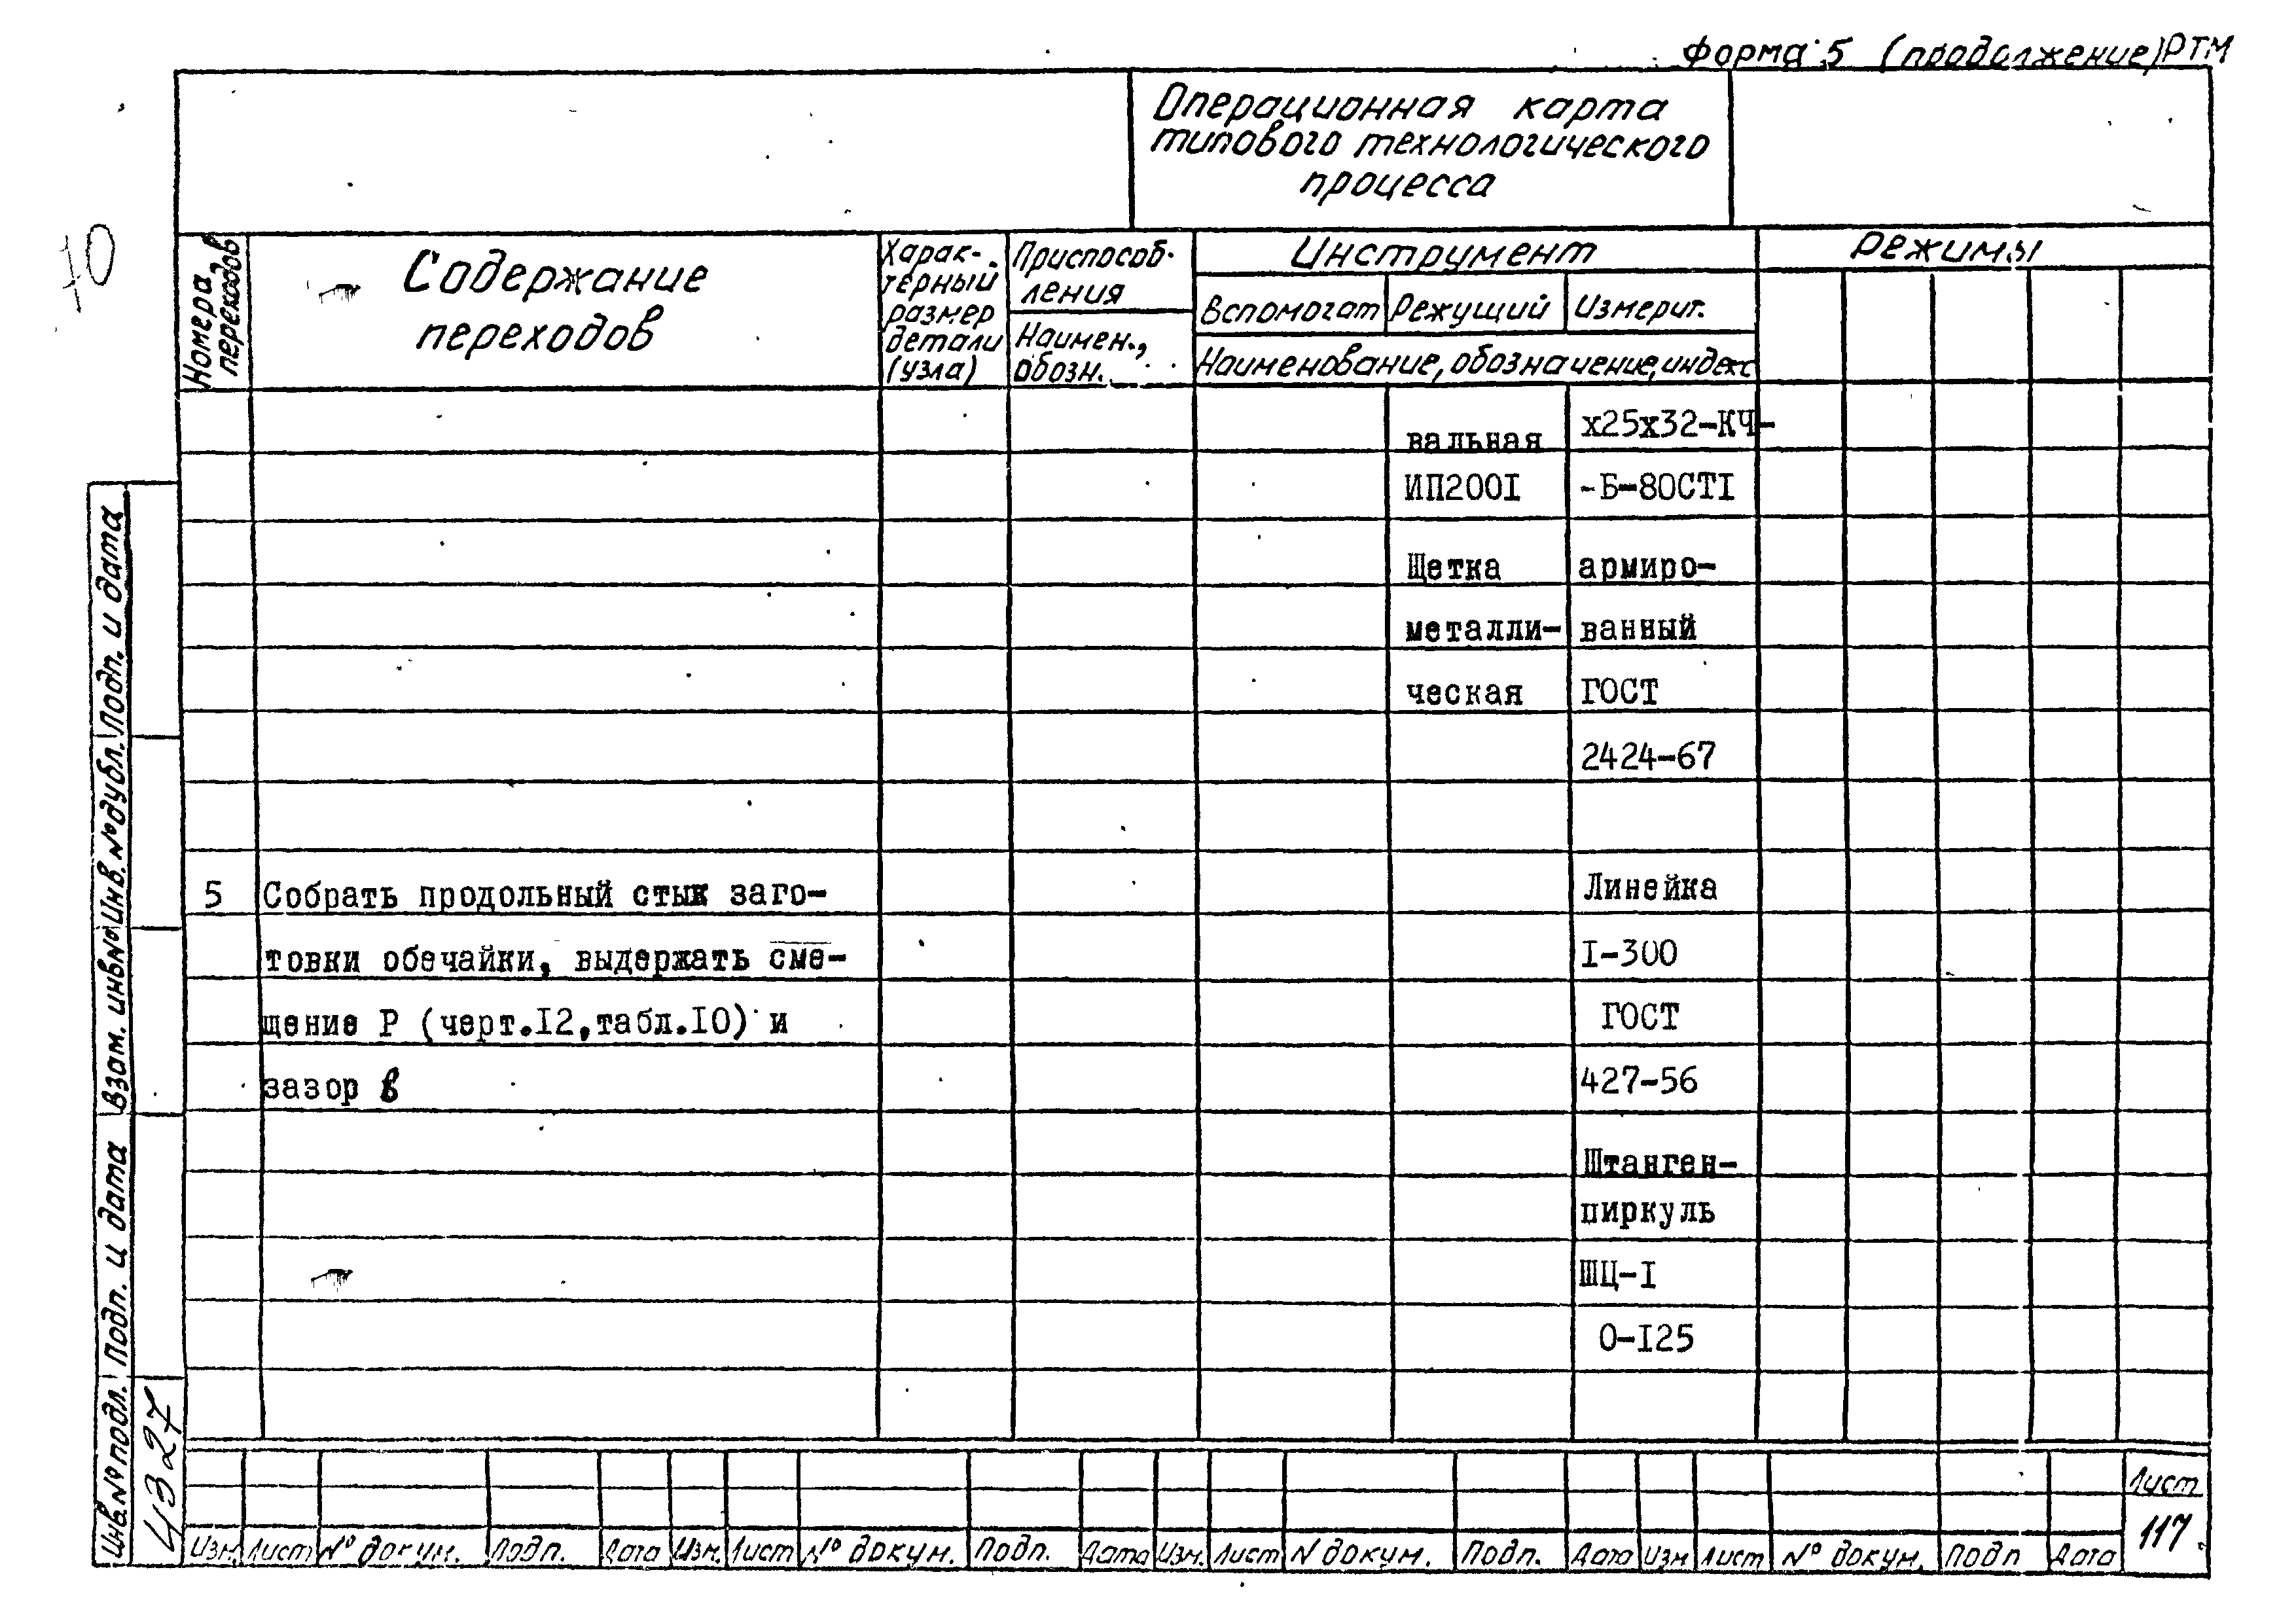 форма 5 (продолжение) РТМ
Операционная карта
типового технологического
процесса
Номера
переходов
Содержание
переходов
Харак-
терный
размер
детали
(узла)
Приспособ-
ления
Наимен.,
обозн.
Инструмент
Вспомогат
Режущий
Измерит.
Наименование, обозначение, индекс
Режимы
вальная
х25х32-КЧ-
ИП200I
-Б-80СТI
Щетка
армиро-
металли-
ванный
ческая
ГОСТ
2424-67
5 Собрать продольный стык заго-
Линейка
товки обечайки, выдержать сме-
I-300
щение Р (черт.I2,табл.I0) и
ГОСТ
зазор в
427-56
Штанген-
циркуль
ШЦ-I
0-I25
Инв.№подл. Подп. и дата Взам. инв№ Инв.№дубл. Подп. и дата
Изм. Лист № докум. Подп. Дата Изм. Лист № докум. Подп. Дата Изм. Лист N докум. Подп. Дата Изм Лист № докум. Подп Дата
Лист
117